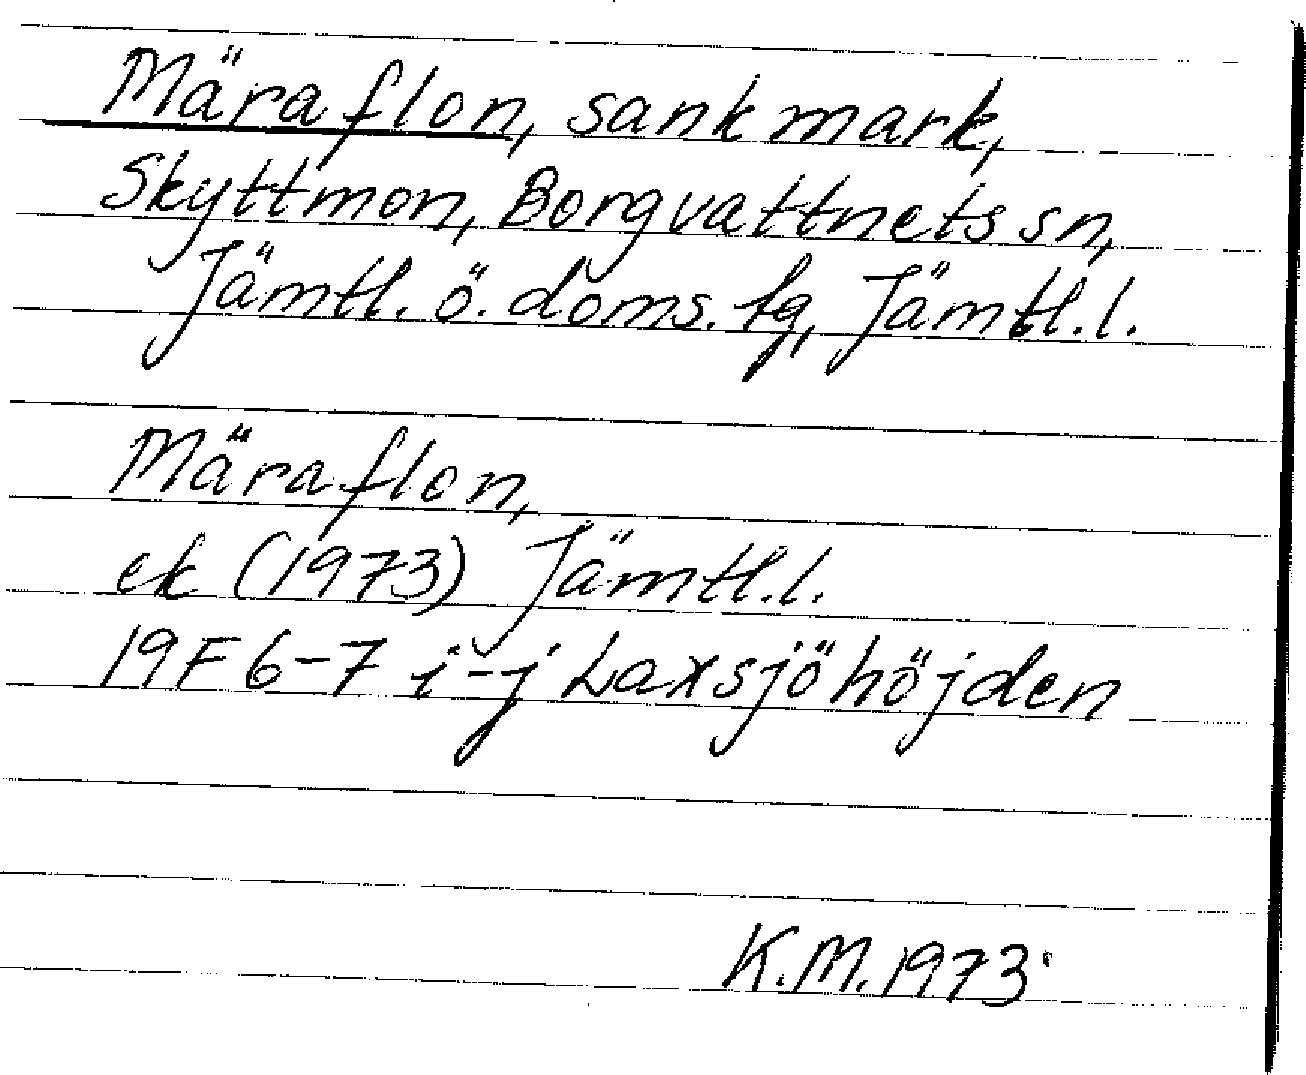 Märaflon, sankmark,
Skyttmon, Borgvattnets sn,
Jämtl. ö. doms. tg, Jämtl. l.
Märaflon,
ek (1973) Jämtl. l.
19F 6-7 i-j Laxsjöhöjden
K.M. 1973